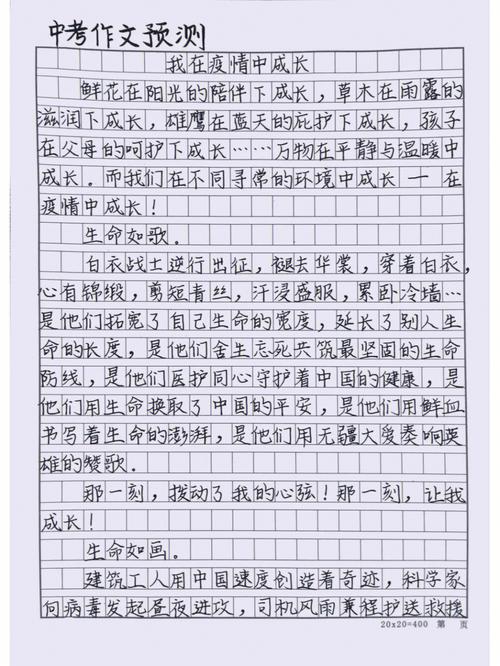 中考作文预测
我在疫情中成长
鲜花在阳光的陪伴下成长，草木在雨露的
滋润下成长，雄鹰在蓝天的庇护下成长，孩子
在父母的呵护下成长……万物在平静与温暖中
成长。而我们在不同寻常的环境中成长一在
疫情中成长！
生命如歌。
白衣战士逆行出征，褪去华裳，穿着白衣，
心有锦缎，剪短青丝，汗浸盛服，累卧冷墙…
是他们拓宽了自己生命的宽度，延长了别人生
命的长度，是他们舍生忘死共筑最坚固的生命
防线，是他们医护同心守护着中国的健康，是
他们用生命换取了中国的平安，是他们用鲜血
书写着生命的澎湃，是他们用无疆大爱奏响英
雄的赞歌.
那一刻，拨动了我的心弦！那一刻，让我
成长！
生命如画。
建筑工人用中国速度创造着奇迹，科学家
向病毒发起昼夜进攻，司机风雨兼程护送救援
20x20=400 第 页